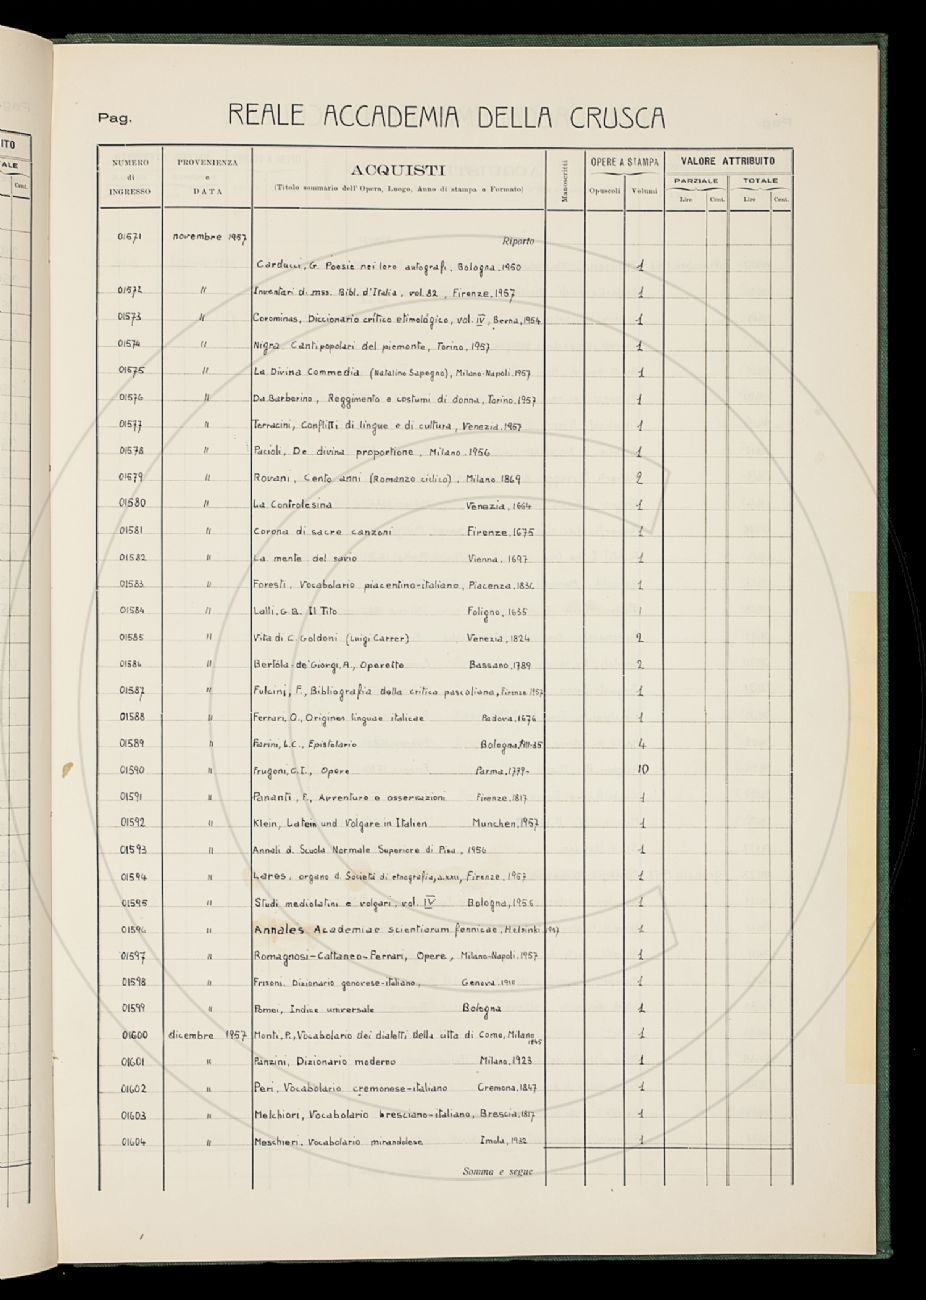 Pag. REALE ACCADEMIA DELLA CRUSCA
NUMERO di INGRESSO
PROVENIENZA e DATA
ACQUISTI
(Titolo sommario dell'Opera, Luogo, Anno di stampa e Formato)
Manoscritti
OPERE A STAMPA
Opuscoli Volumi
VALORE ATTRIBUITO
PARZIALE TOTALE
Lire Cent. Lire Cent.
ITO
ALE
Cent.
01571 novembre 1957 Riporto
Carducci, G. Poesie nei loro autografi, Bologna, 1950 1
01572 " Inventari di mss. Bibl. d'Italia, vol. 82, Firenze, 1957 1
01573 " Corominas, Diccionario crítico etimológico, vol. IV, Berna, 1954 1
01574 " Nigra Canti popolari del piemonte, Torino, 1957 1
01575 " La Divina Commedia (Natalino Sapegno), Milano-Napoli, 1957 1
01576 " Da Barberino, Reggimento e costumi di donna, Torino, 1957 1
01577 " Terracini, Conflitti di lingue e di cultura, Venezia, 1957 1
01578 " Pacioli, De divina proportione, Milano, 1956 1
01579 " Rovani, Cento anni (Romanzo ciclico), Milano 1869 2
01580 " La Controlesina Venezia, 1664 1
01581 " Corona di sacre canzoni Firenze, 1675 1
01582 " La mente del savio Vienna, 1697 1
01583 " Foresti, Vocabolario piacentino-italiano, Piacenza, 1836 1
01584 " Lalli, G.B. Il Tito Foligno, 1635 1
01585 " Vita di C. Goldoni (Luigi Carrer) Venezia, 1824 2
01586 " Bertòla-de'Giorgi, A., Operette Bassano, 1789 2
01587 " Fulcini, F., Bibliografia della critica pascoliana, Firenze 1957 1
01588 " Ferrari, O., Origines linguae italicae Padova, 1676 1
01589 " Farini, L.C., Epistolario Bologna, 4
01590 " Frugoni, C.I., Opere Parma, 1779- 10
01591 " Pananti, F., Avventure e osservazioni Firenze, 1817 1
01592 " Klein, Latein und Volgare in Italien Munchen, 1957 1
01593 " Annali d. Scuola Normale Superiore di Pisa, 1956 1
01594 " Lares, organo d. Società di etnografia, a. XXIII, Firenze, 1957 1
01595 " Studi mediolatini e volgari, vol. IV Bologna, 1956 1
01596 " Annales Academiae scientiarum fennicae, Helsinki 1957 1
01597 " Romagnosi-Cattaneo-Ferrari, Opere, Milano-Napoli, 1957 1
01598 " Frisoni, Dizionario genovese-italiano, Genova, 1910 1
01599 " Pomei, Indice universale Bologna 1
01600 dicembre 1957 Monti, P., Vocabolario dei dialetti della città di Como, Milano 1845 1
01601 " Panzini, Dizionario moderno Milano, 1923 1
01602 " Peri, Vocabolario cremonese-italiano Cremona, 1847 1
01603 " Melchiori, Vocabolario bresciano-italiano, Brescia, 1817 1
01604 " Meschieri, Vocabolario mirandolese Imola, 1932 1
Somma e segue